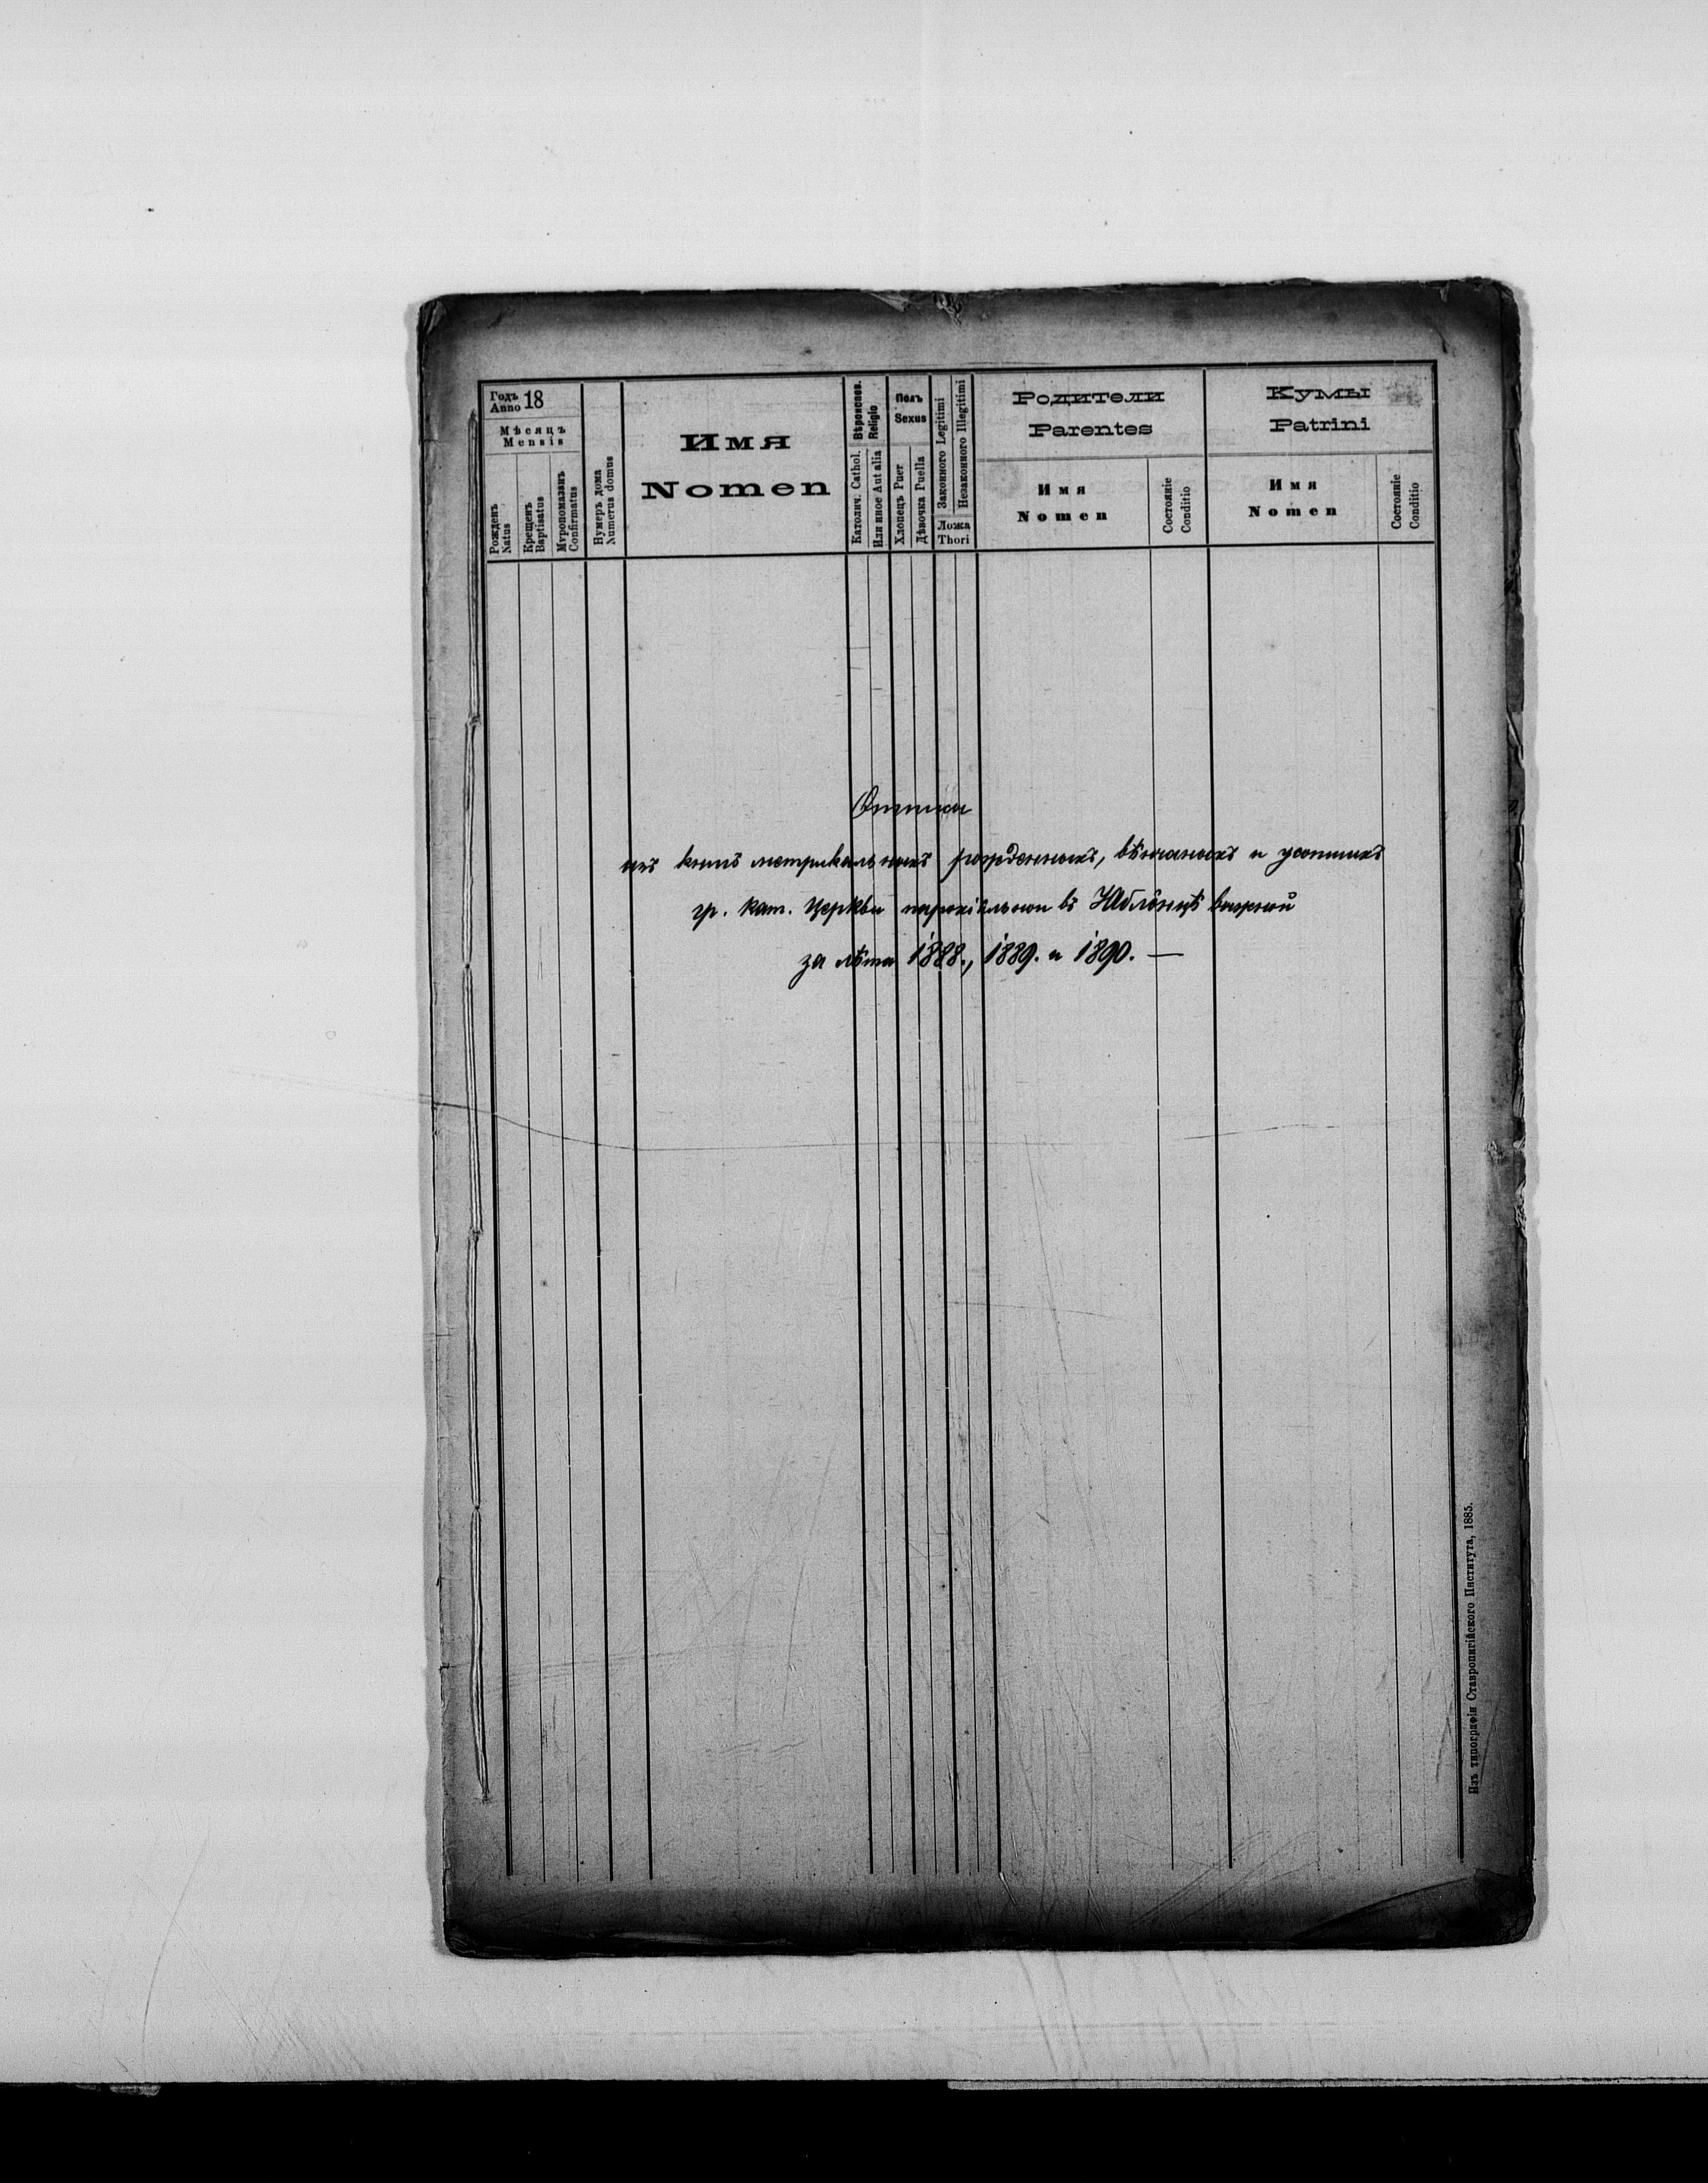 Годъ
Anno 18
Мѣсяцъ
Mensis
Рожденъ
Natus
Крещенъ
Baptisatus
Мѵропомазанъ
Confirmatus
Нумеръ дома
Numerus domus
Имя
Nomen
Вѣроиспов.
Religio
Католич. Cathol.
Или иное Aut alia
Полъ
Sexus
Хлопецъ Puer
Дѣвочка Puella
Законного Legitimi
Незаконного Illegitimi
Ложа
Thori
Родители
Parentes
Имя
Nomen
Состояніе
Conditio
Кумы
Patrini
Имя
Nomen
Состояніе
Conditio
Отписи
изъ книгъ метрикальныхъ рожденныхъ, вѣнчаныхъ и усопшихъ
гр. кат. Церкви парохіяльнои въ Яблônцѣ выжнôй
за лѣта 1888., 1889. и 1890. —
Изъ типографіи Ставропигійского Института, 1885.